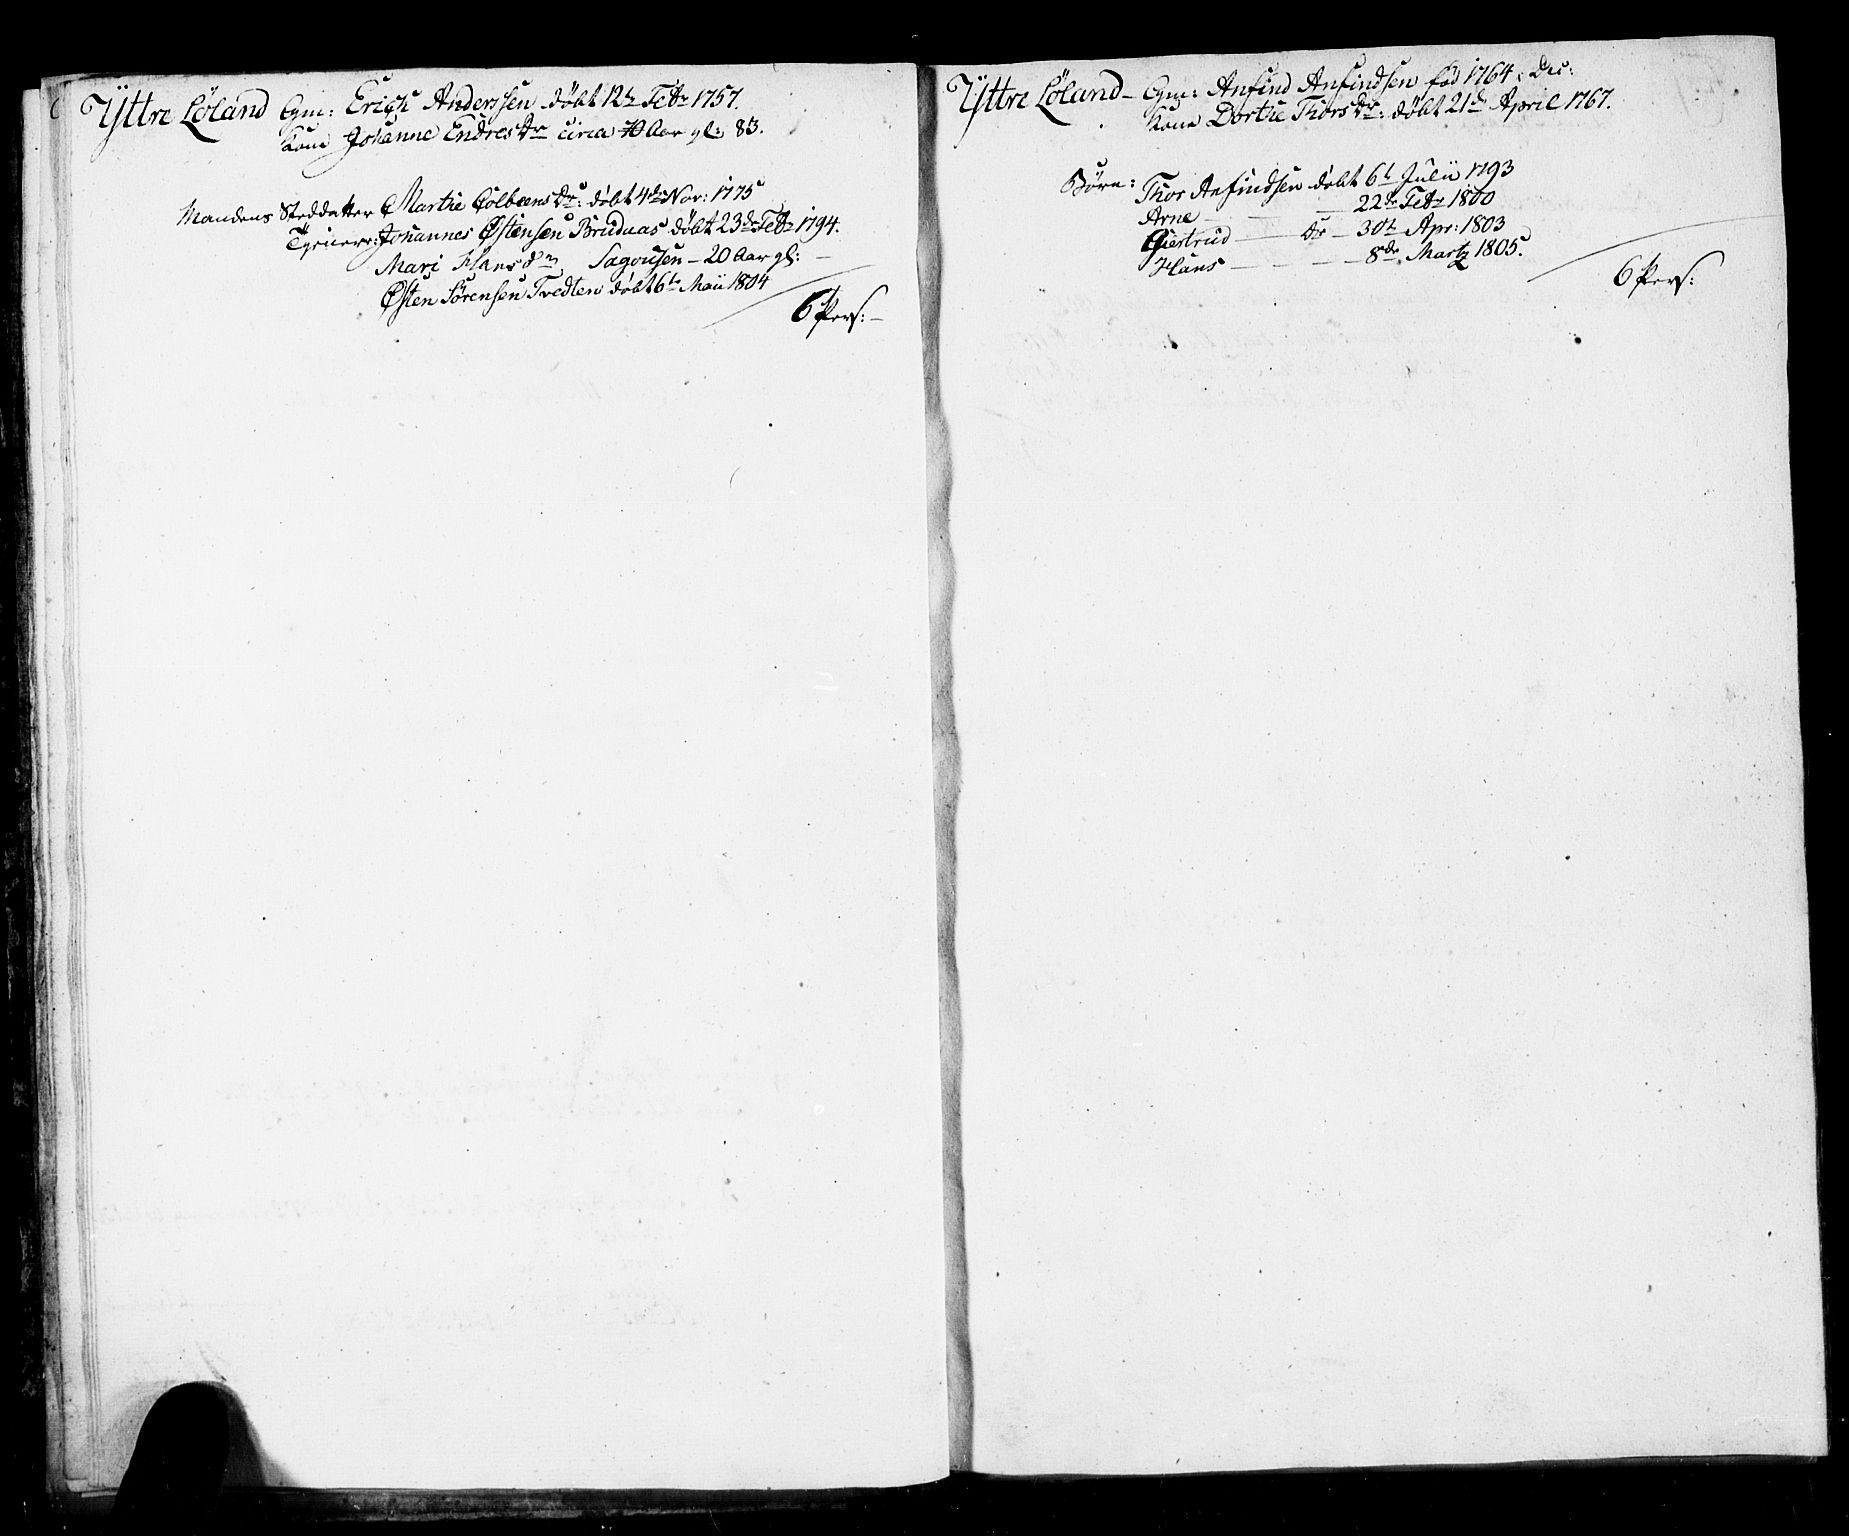 Yttre Löland Egm: Erich Anderssen döbt 12te Febr 1757.
Kone Johanne Endresdr circa 70 Aar gl: 83.
Mandens Steddatter Marthe Colbeensdr: döbt 4de Nov: 1775
Tjenere: Johannes Østensen Brudnaas döbt 23de Febr 1794.
Mari Hansdr – 20 Aar gl: –
Østen Sörensen Tvedten döbt 6te Maii 1804
6 Pers: –
Yttre Löland – Egm: Anfind Anfindsen föd 1764, Dec:
Kone Dorthe Thorsdr: döbt 21de April 1767.
Börn: Thor Anfindsen döbt 6te Julii 1793
Arne – – – 22de Febr 1800
Giertrud – dr – 30te Apr: 1803
Hans – – – – 8de Martz 1805.
6 Pers: